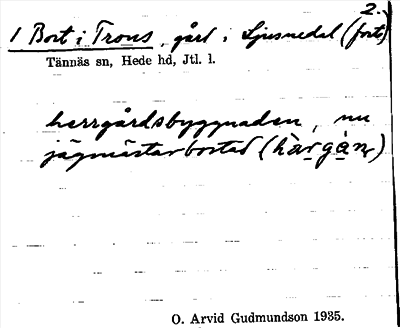 2.
1 Bort i Trons, gård i Ljusnedal (forts)
Tännäs sn, Hede hd, Jtl. l.
herrgårdsbyggnaden, nu
jägmästarbostad (hàrgàn)
O. Arvid Gudmundson 1935.